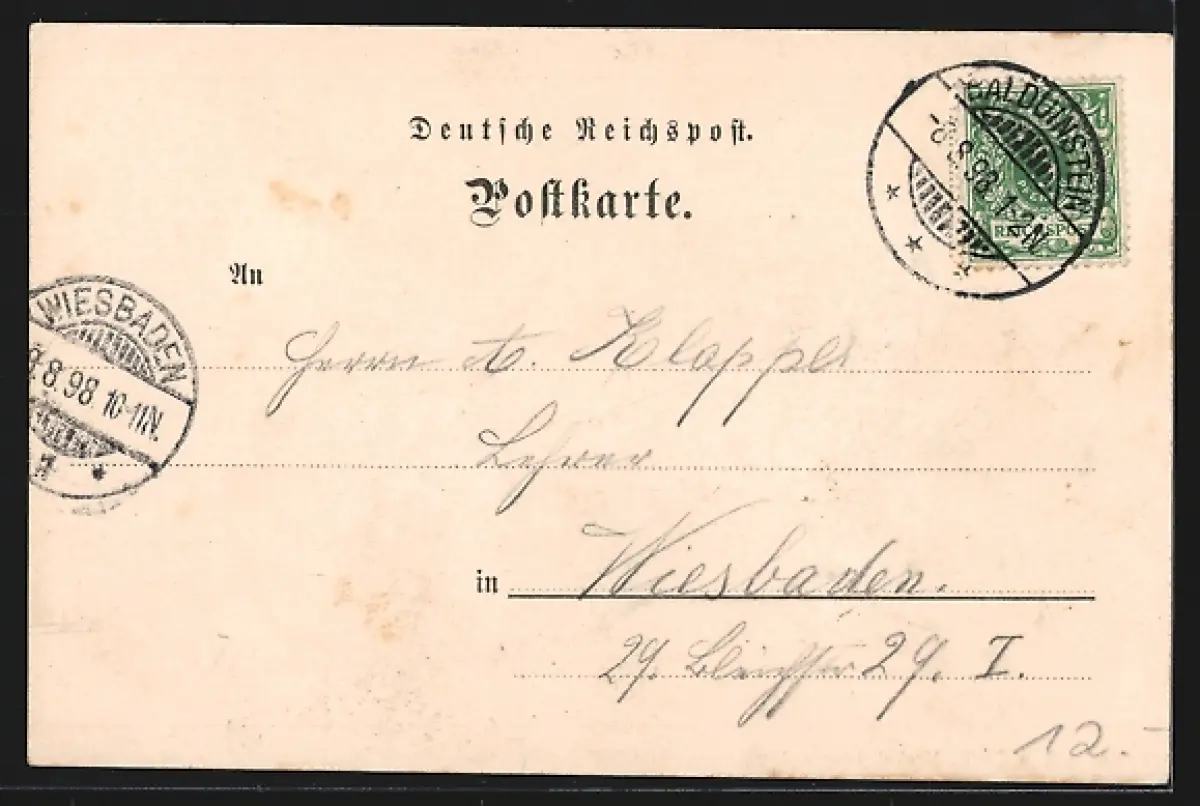 Deutsche Reichspost.
Postkarte.
BALDUINSTEIN
8.8.98. 1-2N
REICHSPOST
An
WIESBADEN
9.8.98. 10-11N.
1
Herrn A. Klapper
Lehrer
in Wiesbaden.
29. Bleichstr 29. I.
12.-